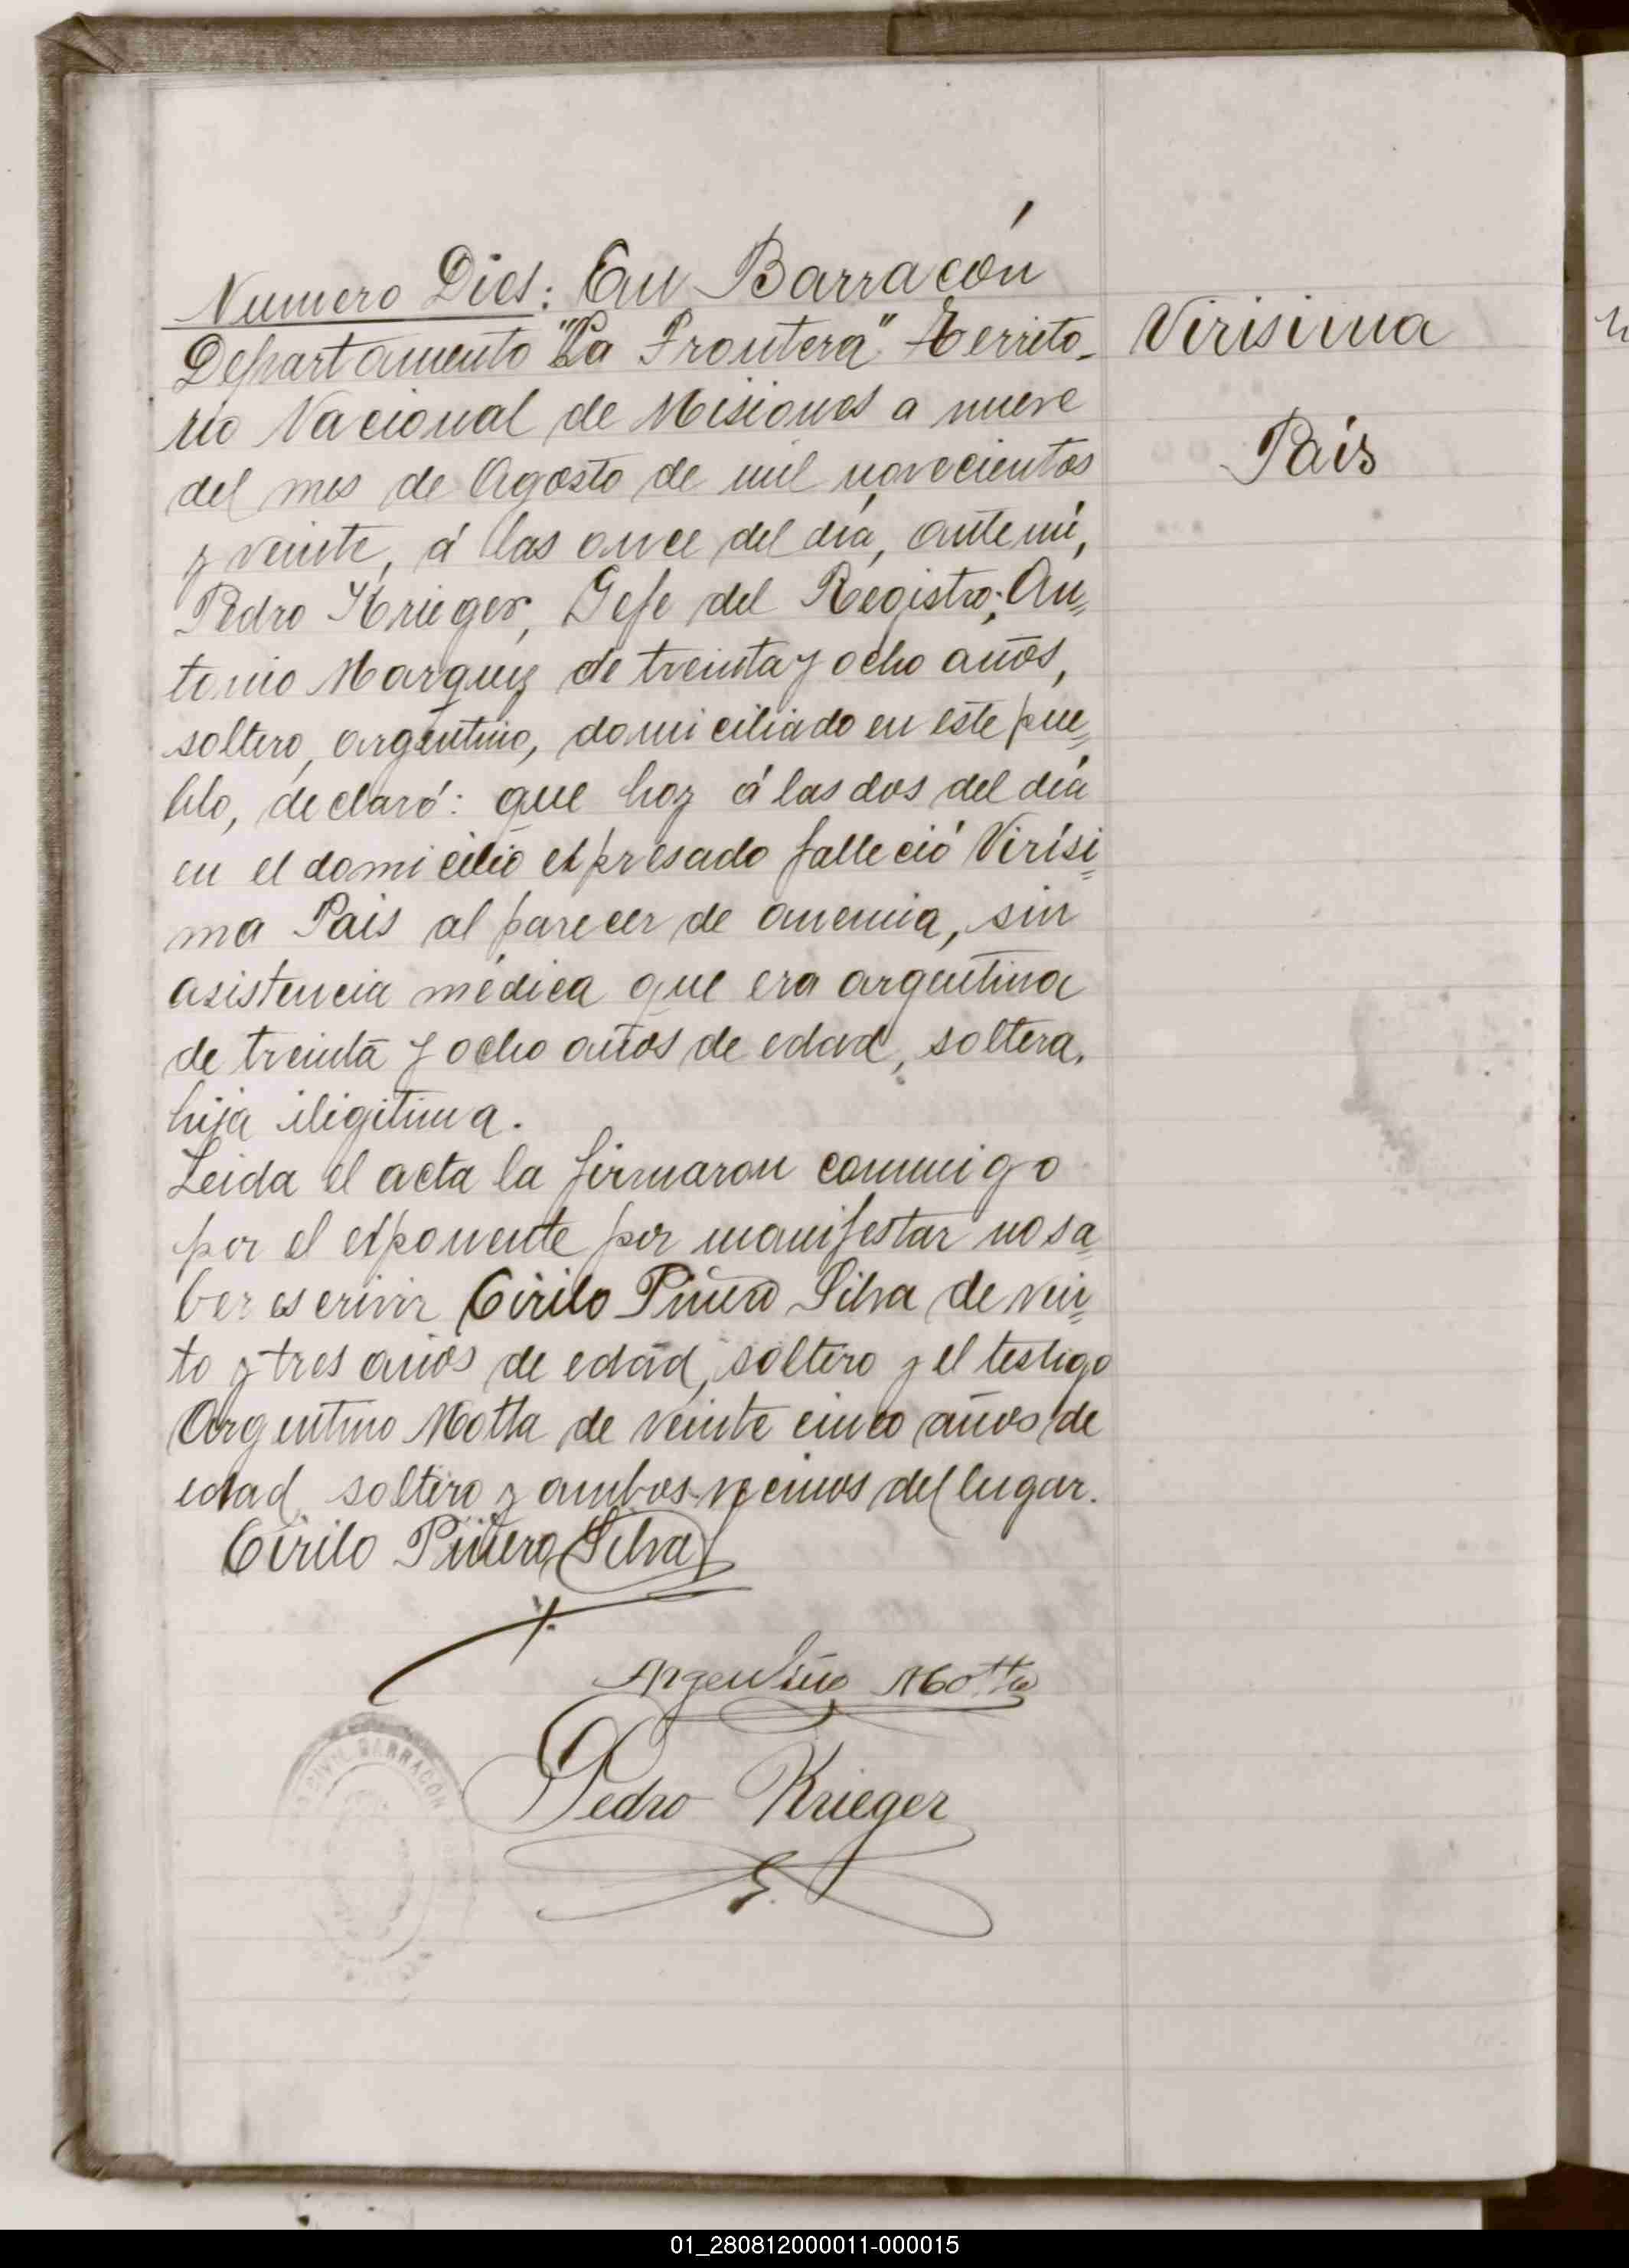 Numero Dies: En Barracón
Departamento "La Frontera" Territo-
rio Nacional de Misiones a nueve
del mes de Agosto de mil novecientos
y veinte, á las once del día, ante mí,
Pedro Krieger, Gefe del Registro; An=
tonio Marquez de treinta y ocho años,
soltero, argentino, domiciliado en este pue=
blo, declaró: que hoy á las dos del día
en el domicilio expresado falleció Virísi=
ma Pais al parecer de anemia, sin
asistencia médica que era argentina
de treinta y ocho años de edad, soltera,
hija iligitima.
Leida el acta la firmaron conmigo
por el exponente por manifestar no sa=
ber escrivir Cirilo Piñero Silva de vein=
to y tres años de edad, soltero y el testigo
Argentino Motta de veinte cinco años de
edad soltero y ambos vecinos del lugar.
Cirilo Piñero Silva
Argentino Motta
Pedro Krieger
Virisima
Pais
CIVIL BARRACÓN
01_280812000011-000015